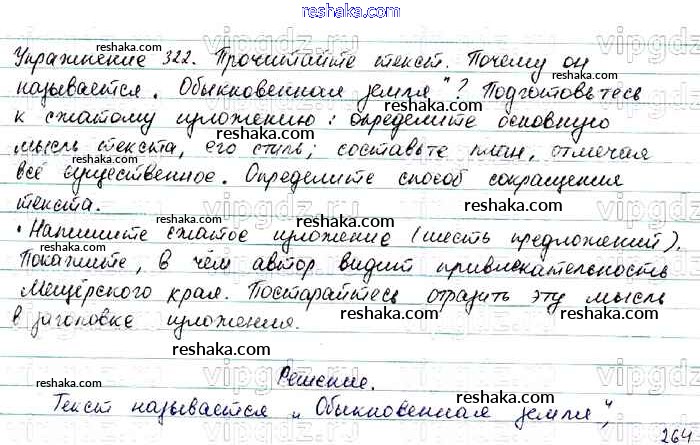 reshaka.com
Упражнение 322. Прочитайте текст. Почему он
называется „Обыкновенная земля"? Подготовьтесь
к сжатому изложению: определите основную
мысль текста, его стиль; составьте план, отмечая
всё существенное. Определите способ сокращения
текста.
• Напишите сжатое изложение (шесть предложений).
Покажите, в чём автор видит привлекательность
Мещёрского края. Постарайтесь отразить эту мысль
в заголовке изложения.
Решение.
Текст называется „Обыкновенная земля",
264